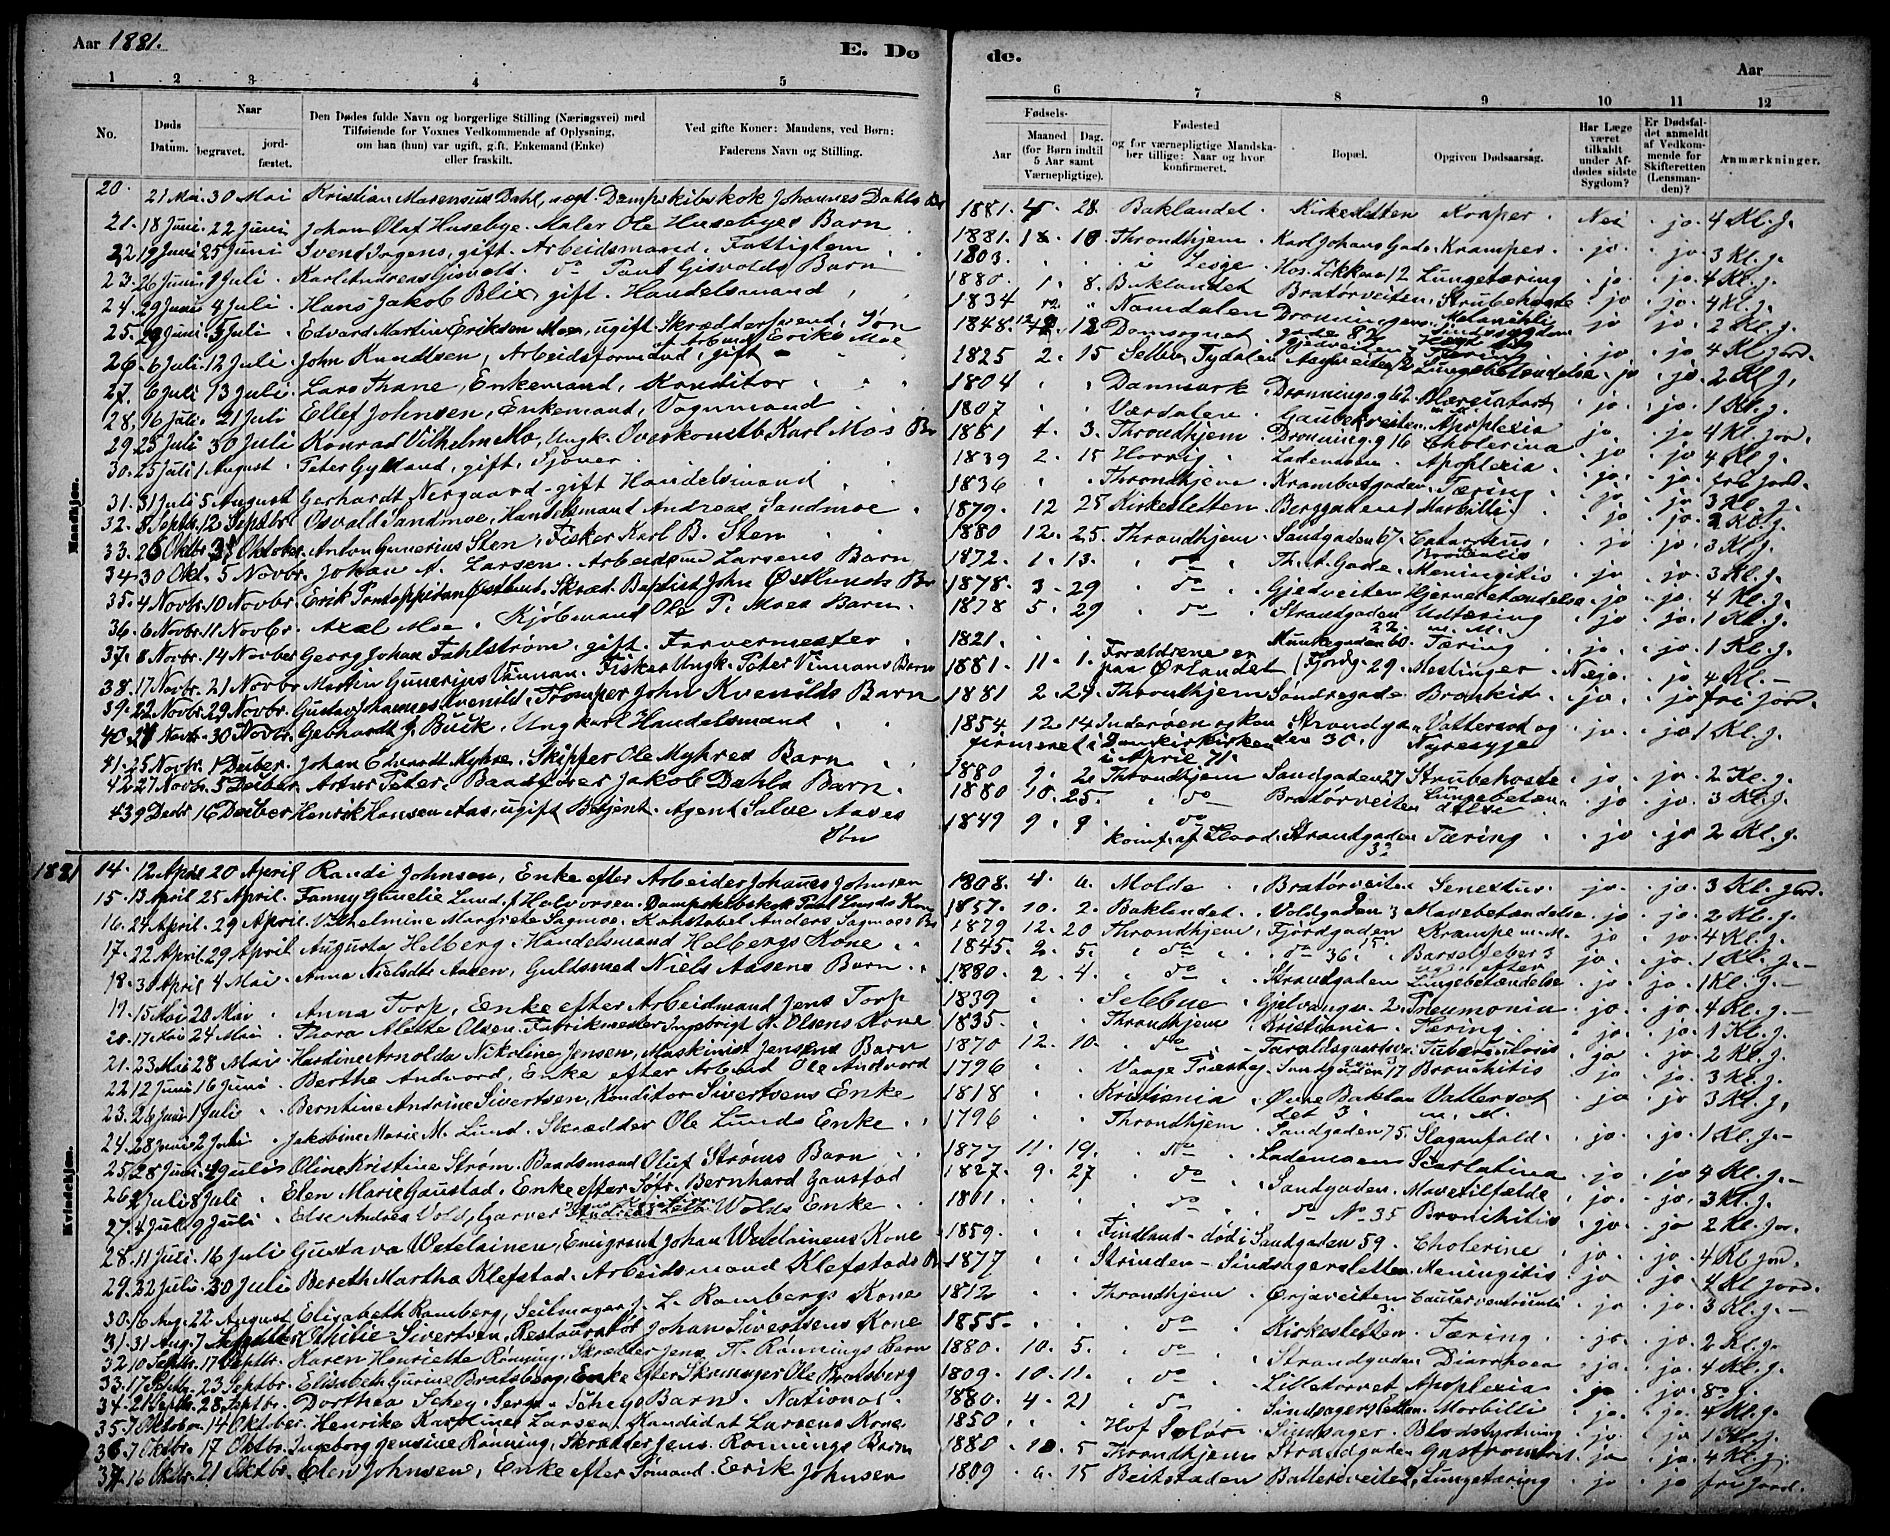 Aar 1881.
E. Dø
de.
Aar
1 2 3 4 5 6 7 8 9 10 11 12
No.
Døds Datum.
Naar
begravet.
jordfæstet.
Den Dødes fulde Navn og borgerlige Stilling (Næringsvei) med
Tilføiende for Voxnes Vedkommende af Oplysning,
om han (hun) var ugift, gift, Enkemand (Enke)
eller fraskilt.
Ved gifte Koner: Mandens, ved Børn:
Faderens Navn og Stilling.
Fødsels-
Aar
Maaned Dag.
(for Børn indtil
5 Aar samt
Værnepligtige).
Fødested
og for værnepligtige Mandskaber tillige: Naar og hvor
konfirmeret.
Bopæl.
Opgiven Dødsaarsag.
Har Læge
været
tilkaldt
under Afdødes sidste
Sygdom?
Er Dødsfaldet anmeldt
af Vedkommende for
Skifteretten
(Lensmanden)?
Anmærkninger.
Mandkjøn.
20. 21 Mai 30 Mai Kristian Marensius Dahl, Dampskibskok Johannes Dahls 1881. 28. Baklandet. Kirkesletten Kramper. Nei jo. 4 Kl. j.
21. 18 Juni. 22 Juni Johan Olaf Husebye. Maler Ole Husebyes Barn 1881. 10 Throndhjem. Karl Johans Gade. Kramper. jo. jo. 3 Kl. j.
22 19 Juni 25 Juni Svend Irgens, gift. Arbeidsmand. Fattiglem 1803. i Lesje. Lungetæring jo. jo. 4 Kl. j.
23. 26 Juni Juli. Karl Andreas Gisvold. do Paul Gisvolds Barn 1880. 1. 8. Baklandet Bratørveiten, Strubehoste jo jo 4 Kl. j.
24. 29 Juni 4 Juli. Hans Jakob Blix, gift. Handelsmand 1834 Namdalen jo jo 2 Kl. j.
25. Juni 5 Juli. Edvard Martin Eriksen Moe, ugift Skrædder svend, Søn Arbmd Eriks Moe 1848. 12 18 Domsognet
26. 6 Juli. 12 Juli. John Knudtsen, Arbeidsformand, gift 1825 2. 15 Selbu, Tydalen Tæring jo. 4 Kl. jord.
27. 6 Juli 13 Juli. Lars Thane, Enkemand, Konditor 1804 Danmark Lungebetændelse jo jo 2 Kl. j.
28. 16 Juli. 21 Juli Ellef Johnsen, Enkemand, Vognmand 1807 Værdalen. jo. jo. 1 Kl. j.
29 25 Juli 30 Juli Konrad Vilhelm Mo, Ungk. Overkonstb Karl Mos 1881 4. 3. Throndhjem Dronning. g 16 Cholerina jo. jo. 4 Kl. jord.
30. 25 Juli 1 August. Peter Gylland, gift, Sjøver. 1839 2. 15 Lademoen Apoplexia. jo. jo 4 Kl. j.
31. 31 Juli 5 August Gerhardt Nergaard gift Handelsmand 1836 Throndhjem Krambodgaden Tæring jo jo. fri jord.
32. 8 Septb. 12 Septbr Osvald Sandmoe, Handelsmand Andreas Sandmoe 1879. 12 25 Kirkesletten Morbilli jo. jo. 3 Kl. j.
33. 26 Oktbr. 31 Oktober Anton Gunerius Sten. Fisker Karl B. Sten 1880 12. 25. Throndhjem. Sandgaden 67. Catarrhus jo jo. 2 Kl. j.
34. 30 Okt. 5 Novbr. Johan A. Larsen. Arbeidsm Larsens Barn 1872. 1. 13. do Th. A. Gade. Meningitis jo. jo. 3 Kl. j.
35. 4 Novbr. 10 Novbr. Erik Pontoppidan Østlund. Skræd. John Østlunds 1878. 3. 29 do Gjedveiten Hjernebetændelse jo. jo. 4 Kl. j.
36. 6 Novbr. 11 Novbr. Axel Moe. Kjøbmand Ole P. Moes Barn. 1878 5. 29 do Strandgaden 22 Udtæring m. M. jo. jo. 1 Kl. j.
37. 8 Novbr. 14 Novber Georg Johan Fahlstrøm, gift. Farvermester 1821. Munkegaden 60. Tæring jo. jo. 1 Kl. j.
38. 17 Novbr. 21 Novbr. Martin Gunerius Vinnan. Fisker Ungk. Peter Vinnans Barn 1881. 11. 1. Forældrene er paa Ørlandet Fjordg. 29. Meslinger Næjo. jo 4 Kl.
39. 22 Novbr. 29 Novbr. Gustav Johannes Kvenild. Tromper John Kvenilds Barn 1881 2. 24. Throndhjem Søndregade Bronkit jo. jo. fri jord.
40. Novbr. 30 Novbr. Gebhardt J. Buck, Ungkarl Handelsmand 1854. 12. 14 Inderøen og konfirmeret i Domkirken i April 71. Strandgaden 30. Vattersot og Nyresyge jo. jo. 1 Kl. j.
41. 25 Novbr. 1 Decber. Johan Edvardt Myhre, Skipper Ole Myhres Barn 1880 2. Throndhjem Sandgaden 27 Strubehoste jo. jo. 2 Kl. j.
42. 27 Novbr. 5 Decber Artur Peter. Baadfører Jakob Dahls Barn. 1880 10. 25. do Bratørveiten Lungebetændelse jo. jo. 3 Kl. j.
43. 9 Decbr 16 Decber Henrik Hansen Aas, ugift Betjent. Agent Salve Aases Søn 1849 9. 9. do Strandgaden 32 Tæring jo jo 2 Kl. j.
1881
Kvindekjøn.
14. 12 April 20 April Randi Johnsen, Enke efter Arbeider Johanes Johnsen 1808. 4. Molde. Bratørveiten Senectus. jo. jo. 3 Kl. jord.
15. 13 April 25 April. Fanny Gunelie Lund, f. Halvorsen. Dampskibskok Paul Lunds Kone 1857. 10. 2. Baklandet. Voldgaden 3 Mavebetændelse jo. jo. 2 Kl. j.
16. 24 April. 29 April. Vilhelmine Margrete Sagmoe. Konstabel Anders Sagmoes 1879 12. 20 Throndhjem, Fjordgaden 15. Krampe m. M. jo jo. 4 Kl. j.
17. 22 April. 29 April. Augusta Helberg. Handelsmand Helbergs Kone 1845. 2. 5. do do 36. Barselfeber jo. jo. 1 Kl. j.
18. 30 April 4 Mai. Anna Nielsdtr Aasen, Guldsmed Niels Aasens Barn 1880. 2. 4. do Strandgaden Lungebetændelse jo. jo. 1 Kl. j.
19. 15 Mai 20 Mai Anna Torp, Enke efter Arbeidmand Jens Torp 1839 Selebue Gjelvangv. 2. Pneumonia jo. jo. 4 Kl. j.
20. 17 Mai 24 Mai Thora Alette Olsen. Fabrikmester Ingebrigt K. Olsens Kone 1835. Throndhjem. Kristiania Tæring. jo. jo. 1 Kl. j.
21. 23 Mai 28 Mai Hardine Arnolda Nikoline Jensen, Maskinist Jensens Barn 1870 12. 10. do Taraldsgaardsv. Tuberculosis jo jo. 2 Kl. j.
22 12 Juni 16 Juni Berthe Andvord, Enke efter Arbmd Ole Andvord 1796 Sandgaden 17 Bronchitis jo jo. 3 Kl. j.
23. 26 Juni 1 Juli Berntine Andrine Sivertsen, Konditor Sivertsens Enke 1818 Kristiania Øvre Baklandet 3 Vattersot m. M. jo jo. 3 Kl. j.
24. 28 Juni 2 Juli. Jakobine Marie M. Lund. Skrædder Ole Lunds Enke 1796 Throndhjem Sandgaden 75. Slaganfald. jo. jo. 1 Kl. j.
25. 28 Juni. 4 Juli Oline Kristine Strøm. Baadsmand Oluf Strøms Barn 1877 11. 19. do Lademoen Scarlatina jo jo. 4 Kl. j.
26. 2 Juli 8 Juli Elen Marie Gaustad. Enke efter Bernhard Gaustad 1827. 9. 27 do Sandgaden. Mavetilfælde jo. jo. 3 Kl. j.
27. 4 Juli 9 Juli Else Andrea Wold, Garver Wolds Enke 1801. do do No 35 Bronchitis jo. jo. 2 Kl. jor.
28. 11 Juli. 16 Juli Gustava Wetelainen, Emigrant Johan Wetelainens Kone 1859. Findland død i Sandgaden 59. Cholerine jo. jo. 4 Kl. jord.
29. 22 Juli 30 Juli Bereth Martha Klefstad. Arbeidsmand Klefstads 1877 Strinden Sindsagersletten. Meningitis jo jo. 4 Kl. jord.
30. 16 Aug. 22 August Elisabeth Ramberg, Seilmager J. L. Rambergs Kone 1812 Throndhjem Ørjaveiten 3 jo jo. 3 Kl. j.
31. 31 Aug. 7 Septbr Othilie Sivertsen, Restauratør Johan Sivertsens Kone 1855 do Kirkesletten Tæring. jo. jo. 2 Kl. j.
32. 10 Septbr. 17 Septbr. Karen Henriette Rønning, Skrædder Jens T. Rønnings Barn 1880. 10. 5. do Strandgaden Diarrhoea jo. jo. 4 Kl. j.
33. 17 Septbr. 23 Septbr. Elisabeth Gurine Bratsberg, Enke efter Skomager Ole Bratsberg 1809. 10. 11. do Lilletorvet Apoplexia jo jo.
34. 21 Septbr. 28. Septbr. Dorthea Schey. Sergt. Scheys Barn. National. 1880. 4. 21 do Sindsagersletten Morbilli jo. jo. 4 Kl. j.
35. 7 Oktober 14 Oktober. Henrike Kartine Larsen, Kandidat Larsens Kone 1850 Hof Solør Sindsager. Blodstyrtning jo. jo. 1 Kl. j.
36. 7 Oktbr. 17 Oktbr. Ingeborg Jensine Rønning, Skrædder Jens. Rønnings Barn 1880. 10. 5 Throndhjem Strandgaden jo jo 4 Kl. j.
37. 16 Oktbr. 21 Oktbr. Elen Johnsen, Enke efter Sømand. Eerik Johnsen 1809 15 Beitstaden Lungetæring jo jo fri Jord.